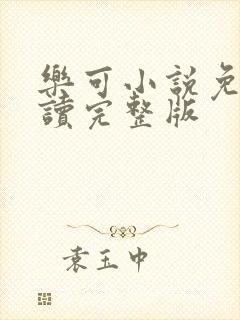 樂可小說免
讀完整版
袁玉中